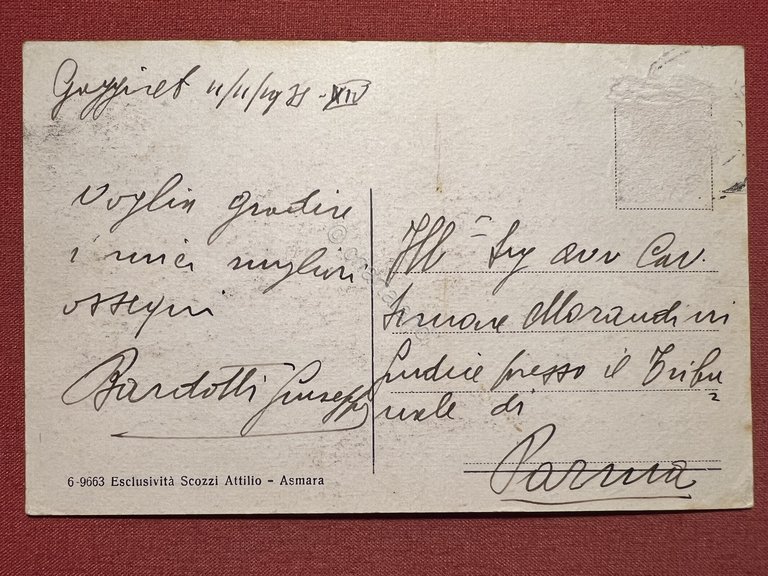 11/11/19 - XIV
Voglia gradire
i miei migliori
ossequi
Bardotti Giuseppe
Ill Sig avv Cav.
Morandini
Giudice presso il Tribu
nale di
Parma
6-9663 Esclusività Scozzi Attilio - Asmara